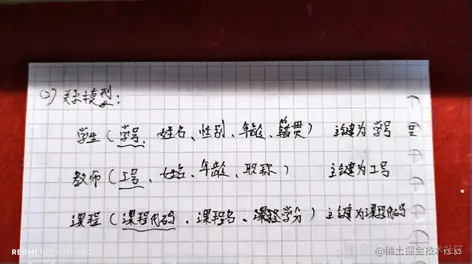 (2) 关系模型:
学生(学号、姓名、性别、年龄、籍贯) 主键为学号
教师(工号、姓名、年龄、职称) 主键为工号
课程(课程代码、课程名、课程学分) 主键为课程代码
REDMI
@稀土掘金技术社区